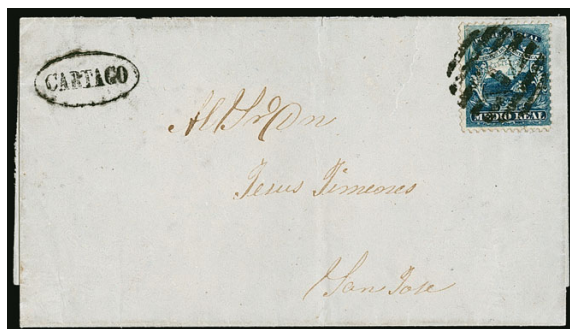 CARTAGO
MEDIO REAL
Al Sr Dn
Jesus Jimenes
San Jose